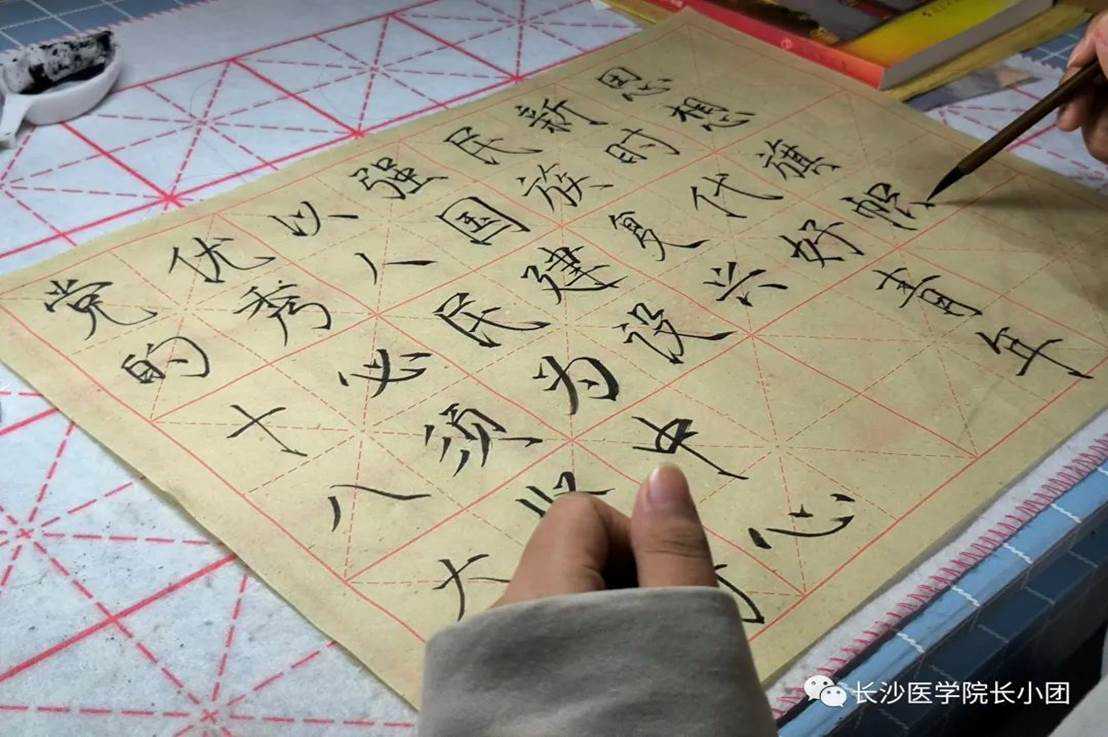 党的十八大
优秀必须
以人民为中心
强国建设
民族复兴
新时代好青年
思想旗帜
长沙医学院长小团